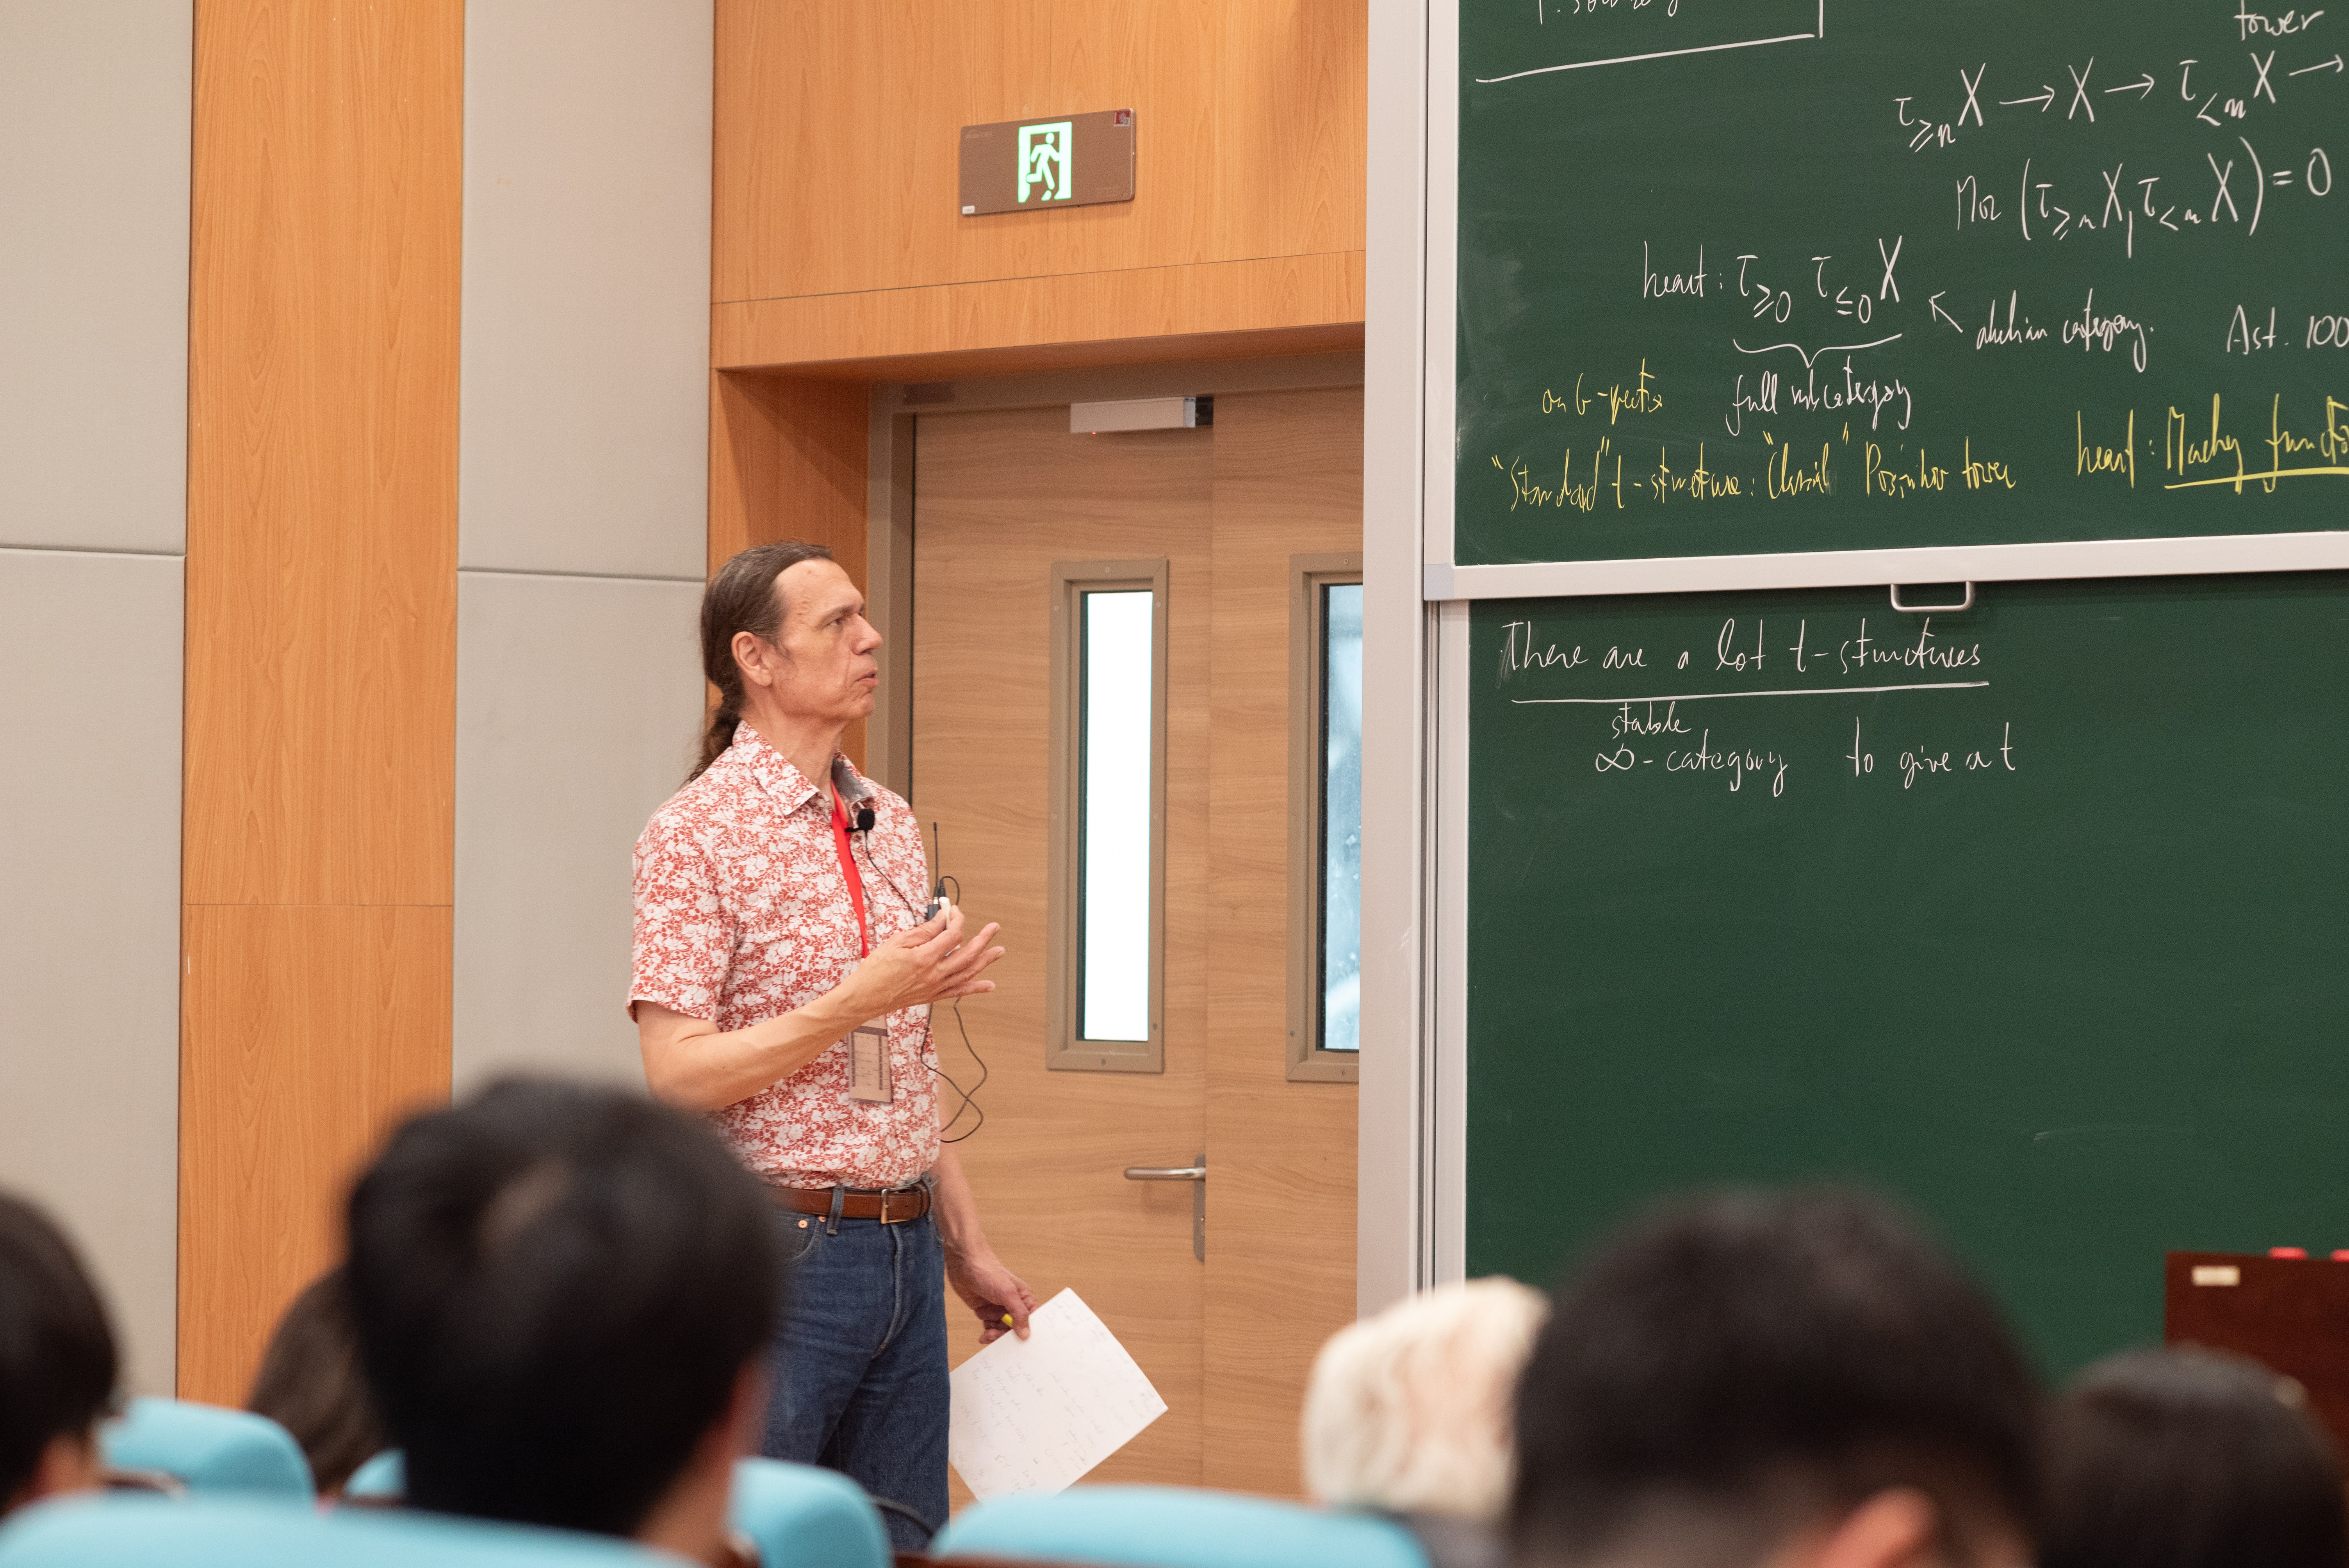 tower
τ≥n X → X → τ<n X →
Mor (τ≥n X, τ<n X) = 0
heart : τ≥0 τ≤0 X
abelian category. Ast. 100
on G-spectra full subcategory
"Standard" t-structure : "Classical" Postnikov tower heart : Mackey functo
There are a lot t-structures
stable
∞-category to give a t